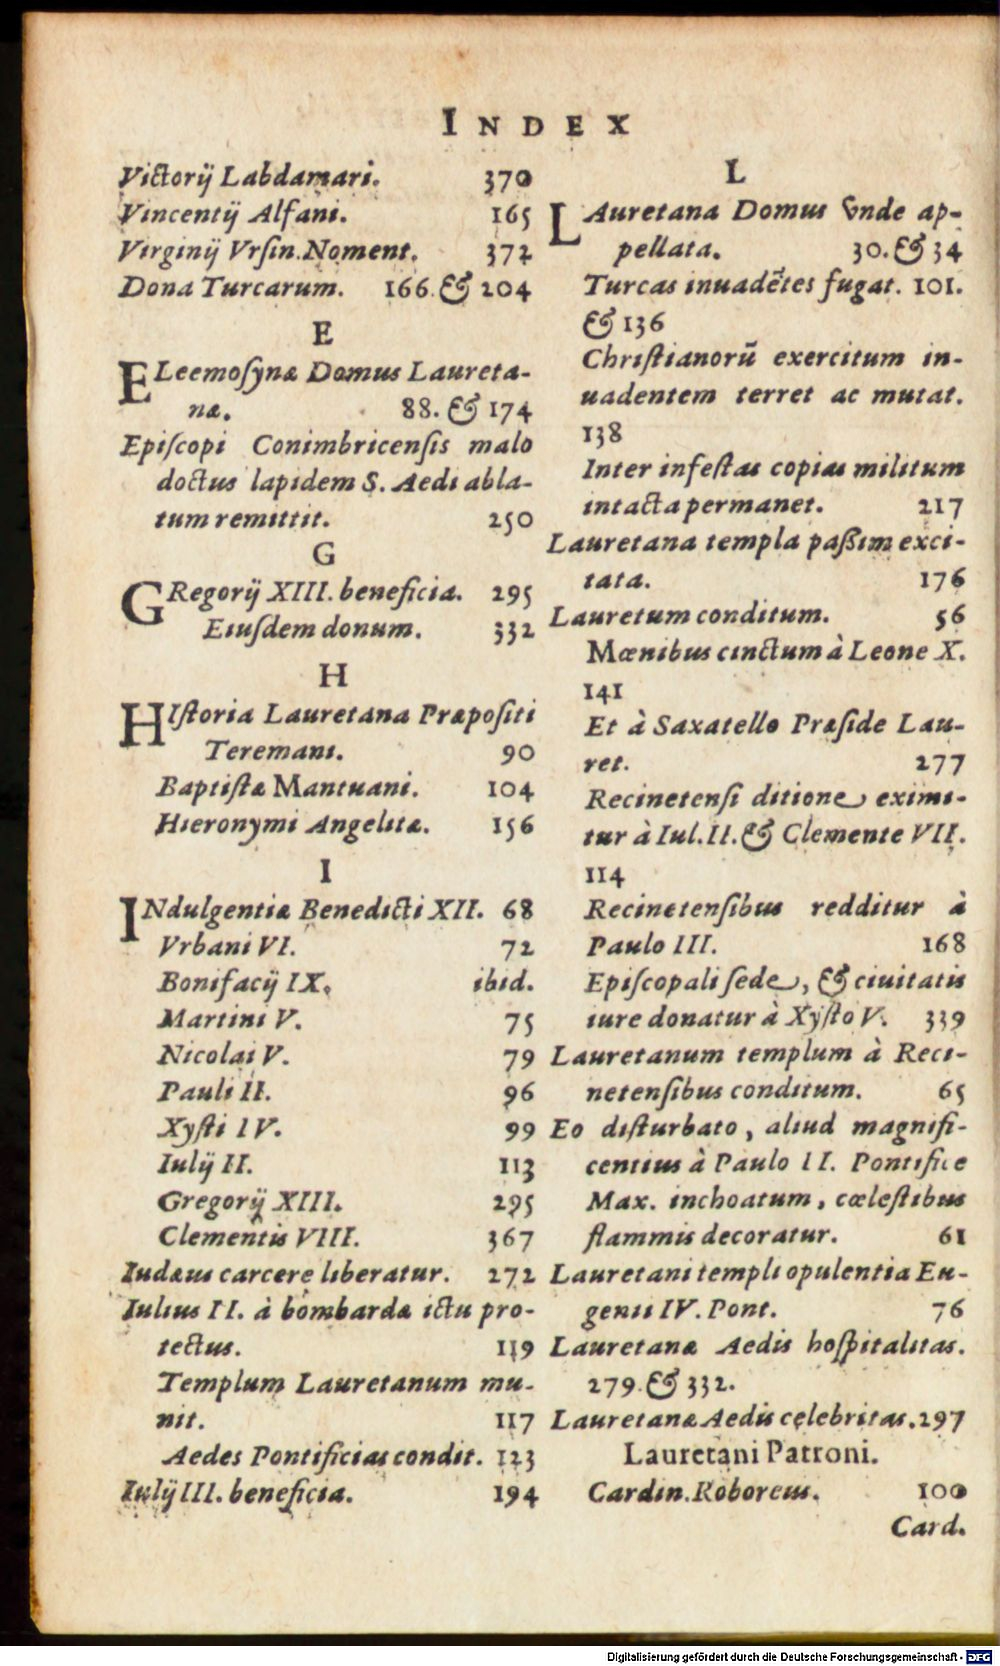 INDEX
Victorij Labdamari. 370
Vincentij Alfani. 165
Virginij Vrsin. Noment. 372
Dona Turcarum. 166. & 204
E
ELeemosynæ Domus Laureta-
næ. 88. & 174
Episcopi Conimbricensis malo
doctus lapidem S. Aedi abla-
tum remittit. 250
G
GRegorij XIII. beneficia. 295
Eiusdem donum. 332
H
HIstoria Lauretana Præpositi
Teremani. 90
Baptistæ Mantuani. 104
Hieronymi Angelitæ. 156
I
INdulgentiæ Benedicti XII. 68
Vrbani VI. 72
Bonifacij IX. ibid.
Martini V. 75
Nicolai V. 79
Pauli II. 96
Xysti IV. 99
Iulij II. 113
Gregorij XIII. 295
Clementis VIII. 367
Iudæus carcere liberatur. 272
Iulius II. à bombardæ ictu pro-
tectus. 119
Templum Lauretanum mu-
nit. 117
Aedes Pontificias condit. 123
Iulij III. beneficia. 194
L
LAuretana Domus vnde ap-
pellata. 30. & 34
Turcas inuadẽtes fugat. 101.
& 136
Christianorũ exercitum in-
uadentem terret ac mutat.
138
Inter infestas copias militum
intacta permanet. 217
Lauretana templa paßim exci-
tata. 176
Lauretum conditum. 56
Mœnibus cinctum à Leone X.
141
Et à Saxatello Præside Lau-
ret. 277
Recinetensi ditione eximi-
tur à Iul. II. & Clemente VII.
114
Recinetensibus redditur à
Paulo III. 168
Episcopali sede, & ciuitatis
iure donatur à Xysto V. 339
Lauretanum templum à Reci-
netensibus conditum. 65
Eo disturbato, aliud magnifi-
centius à Paulo II. Pontifice
Max. inchoatum, cœlestibus
flammis decoratur. 61
Lauretani templi opulentia Eu-
genii IV. Pont. 76
Lauretanæ Aedis hospitalitas.
279. & 332.
Lauretanæ Aedis celebritas. 297
Lauretani Patroni.
Cardin. Roboreus. 100
Card.
Digitalisierung gefördert durch die Deutsche Forschungsgemeinschaft - DFG